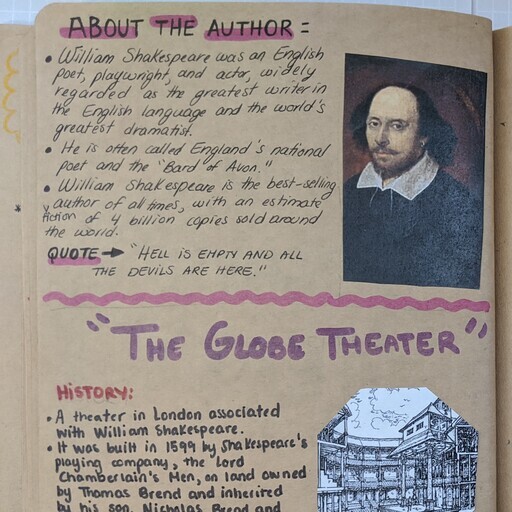 ABOUT THE AUTHOR =
• William Shakespeare was an English
poet, playwright, and actor, widely
regarded as the greatest writer in
the English language and the world's
greatest dramatist.
• He is often called England's national
poet and the "Bard of Avon."
• William Shakespeare is the best-selling
fiction author of all times, with an estimate
of 4 billion copies sold around
the world.
QUOTE → "HELL IS EMPTY AND ALL
THE DEVILS ARE HERE."
"THE GLOBE THEATER"
HISTORY:
• A theater in London associated
with William Shakespeare.
• It was built in 1599 by Shakespeare's
playing company, the Lord
Chamberlain's Men, on land owned
by Thomas Brend and inherited
by his son, Nicholas Brend and